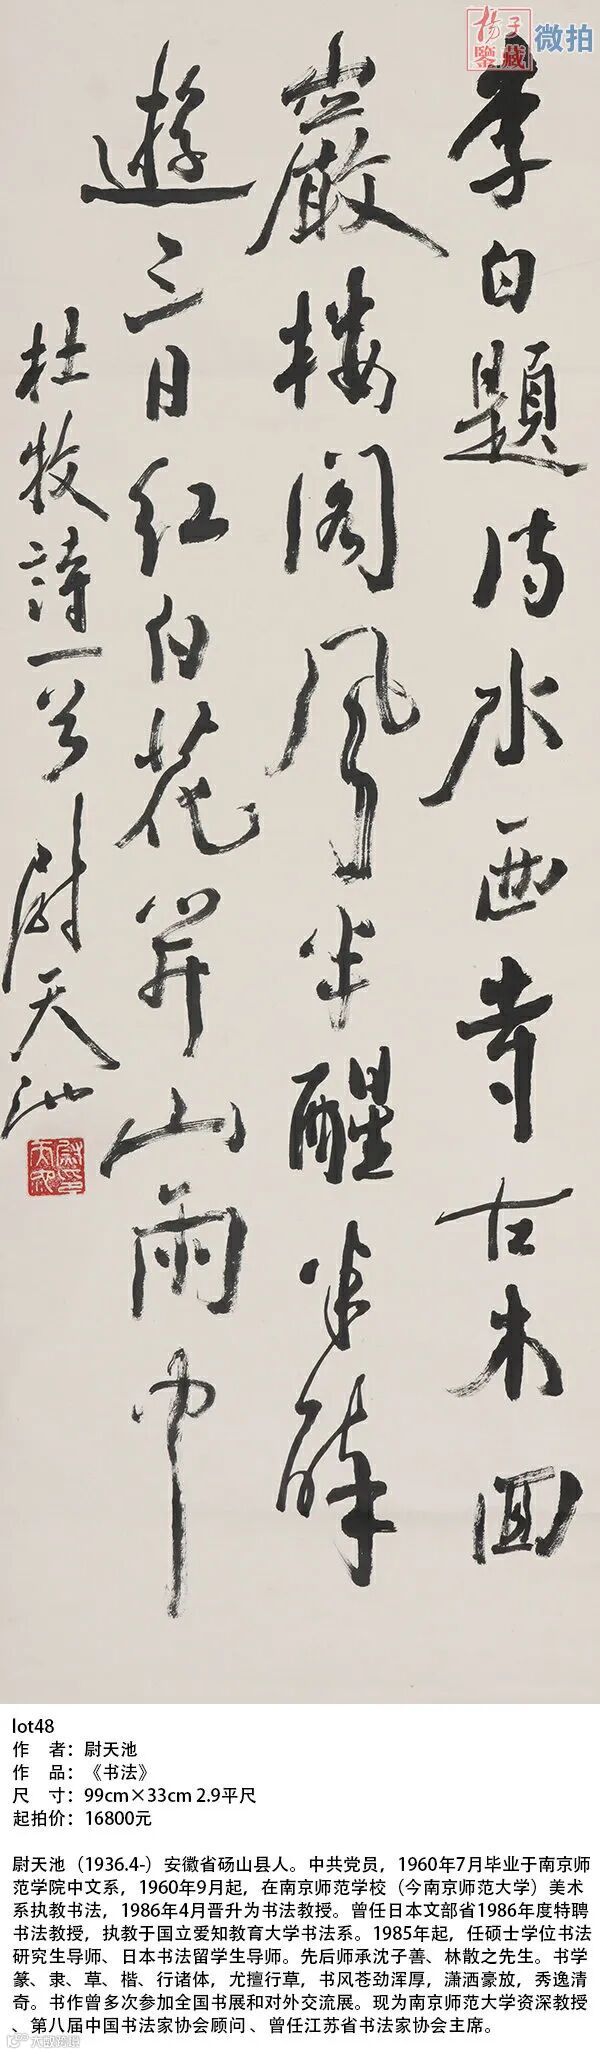 扬子鉴藏 微拍
李白题诗水西寺古木回
巖楼阁风半醒半醉
遊三日红白花开山雨中
杜牧詩一首 尉天池
lot48
作 者：尉天池
作 品：《书法》
尺 寸：99cm×33cm 2.9平尺
起拍价：16800元
尉天池（1936.4-）安徽省砀山县人。中共党员，1960年7月毕业于南京师
范学院中文系，1960年9月起，在南京师范学校（今南京师范大学）美术
系执教书法，1986年4月晋升为书法教授。曾任日本文部省1986年度特聘
书法教授，执教于国立爱知教育大学书法系。1985年起，任硕士学位书法
研究生导师、日本书法留学生导师。先后师承沈子善、林散之先生。书学
篆、隶、草、楷、行诸体，尤擅行草，书风苍劲浑厚，潇洒豪放，秀逸清
奇。书作曾多次参加全国书展和对外交流展。现为南京师范大学资深教授
、第八届中国书法家协会顾问、曾任江苏省书法家协会主席。
大欧跨境